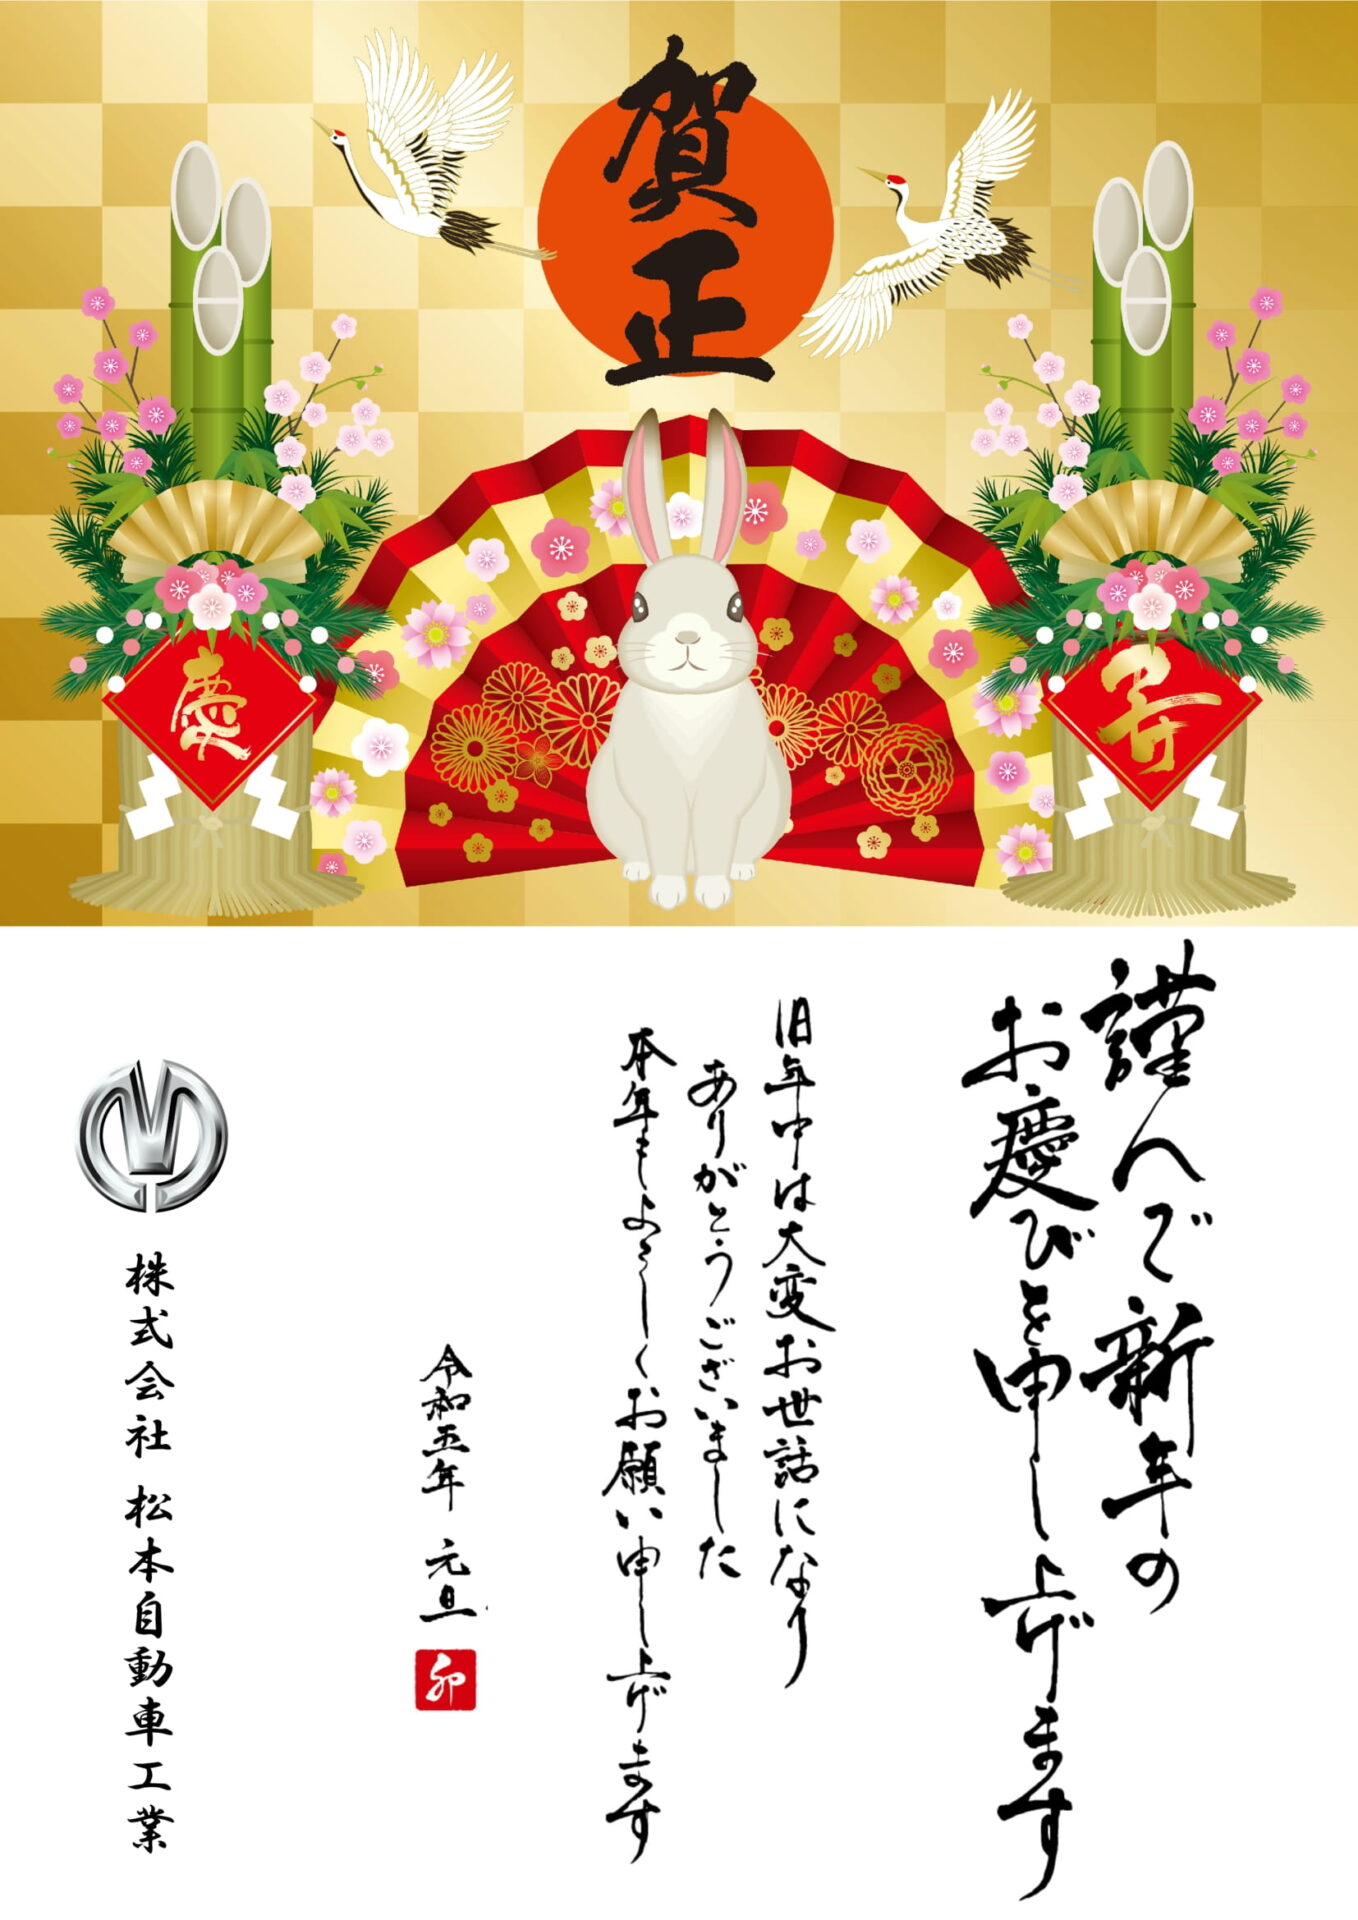 賀正
寿
慶
謹んで新年の
お慶びを申し上げます
旧年中は大変お世話になり
ありがとうございました
本年もよろしくお願い申し上げます
令和五年 元旦
卯
株式会社 松本自動車工業